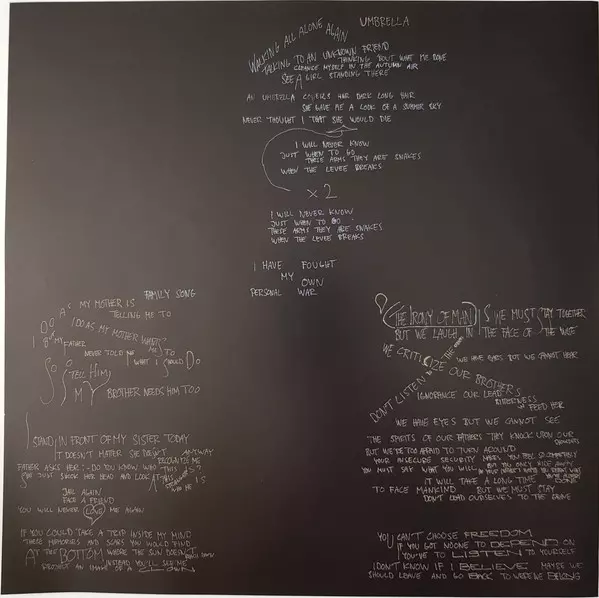 UMBRELLA
WALKING ALL ALONE AGAIN
TALKING TO AN UNKNOWN FRIEND
THINKING 'BOUT WHAT WE DONE
CLEANCE MYSELF IN THE AUTUMN AIR
SEE A GIRL STANDING THERE
AN UMBRELLA COVERS HER DARK LONG HAIR
SHE GAVE ME A LOOK OF A SUMMER SKY
NEVER THOUGHT THAT SHE WOULD DIE
I WILL NEVER KNOW
JUST WHEN TO GO
THESE ARMS THEY ARE SNAKES
WHEN THE LEVEE BREAKS
x2
I WILL NEVER KNOW
JUST WHEN TO GO
THESE ARMS THEY ARE SNAKES
WHEN THE LEVEE BREAKS
I HAVE FOUGHT
MY OWN
PERSONAL WAR
FAMILY SONG
AS MY MOTHER IS
TELLING ME TO
I DO AS MY MOTHER
FATHER
NEVER TOLD ME
WHAT I SHOULD DO
SO
TELL HIM
MY BROTHER NEEDS HIM TOO
I STAND IN FRONT OF MY SISTER TODAY
IT DOESN'T MATTER SHE DOESN'T
RECOGNISE ME
ANYWAY
FATHER ASKS HER: DO YOU KNOW WHO THIS IS?
SHE JUST SHOOK HER HEAD AND LOOK AT
AGAIN
FACE A FRIEND
YOU WILL NEVER LOVE ME AGAIN
IF YOU COULD TAKE A TRIP INSIDE MY MIND
THESE MEMORIES AND SCARS YOU WOULD FIND
AT THE BOTTOM WHERE THE SUN DOESN'T
INSTEAD YOU'LL SEE ME
PROJECT AN IMAGE OF A CLOWN
(THE IRONY OF MAN) IS WE MUST STAY TOGETHER
BUT WE LAUGH IN THE FACE OF THE WISE
WE HAVE EYES BUT WE CANNOT HEAR
WE CRITICIZE OUR BROTHERS
DON'T LISTEN
IGNORANCE OUR LEAD
BITTERNESS
FEED HER
WE HAVE EYES BUT WE CANNOT SEE
THE SPIRITS OF OUR FATHERS THEY KNOCK UPON OUR
THOUGHTS
BUT WE'RE TOO AFRAID TO TURN AROUND
YOUR INSECURE SECURITY MAKES YOU FEEL SO
YOU MUST SAY WHAT YOU WILL
BUT YOU ONLY
IT WILL TAKE A LONG TIME
TO FACE MANKIND BUT WE MUST STAY
DON'T LEAD OURSELVES TO THE GRAVE
YOU CAN'T CHOOSE FREEDOM
IF YOU GOT NOONE TO DEPEND ON
YOU'VE TO LISTEN TO YOURSELF
I DON'T KNOW IF I BELIEVE MAYBE WE
SHOULD LEAVE AND GO BACK TO WHERE WE BELONG